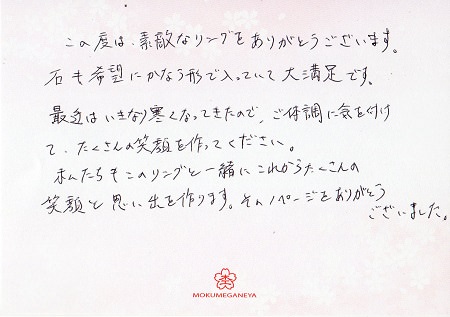 この度は、素敵なリングをありがとうございます。
石も希望にかなう形で入っていて大満足です。
最近はいきなり寒くなってきたので、ご体調に気を付け
て、たくさんの笑顔を作ってください。
私たちもこのリングと一緒にこれからたくさんの
笑顔と思い出を作ります。その1ページをありがとう
ございました。
MOKUMEGANEYA